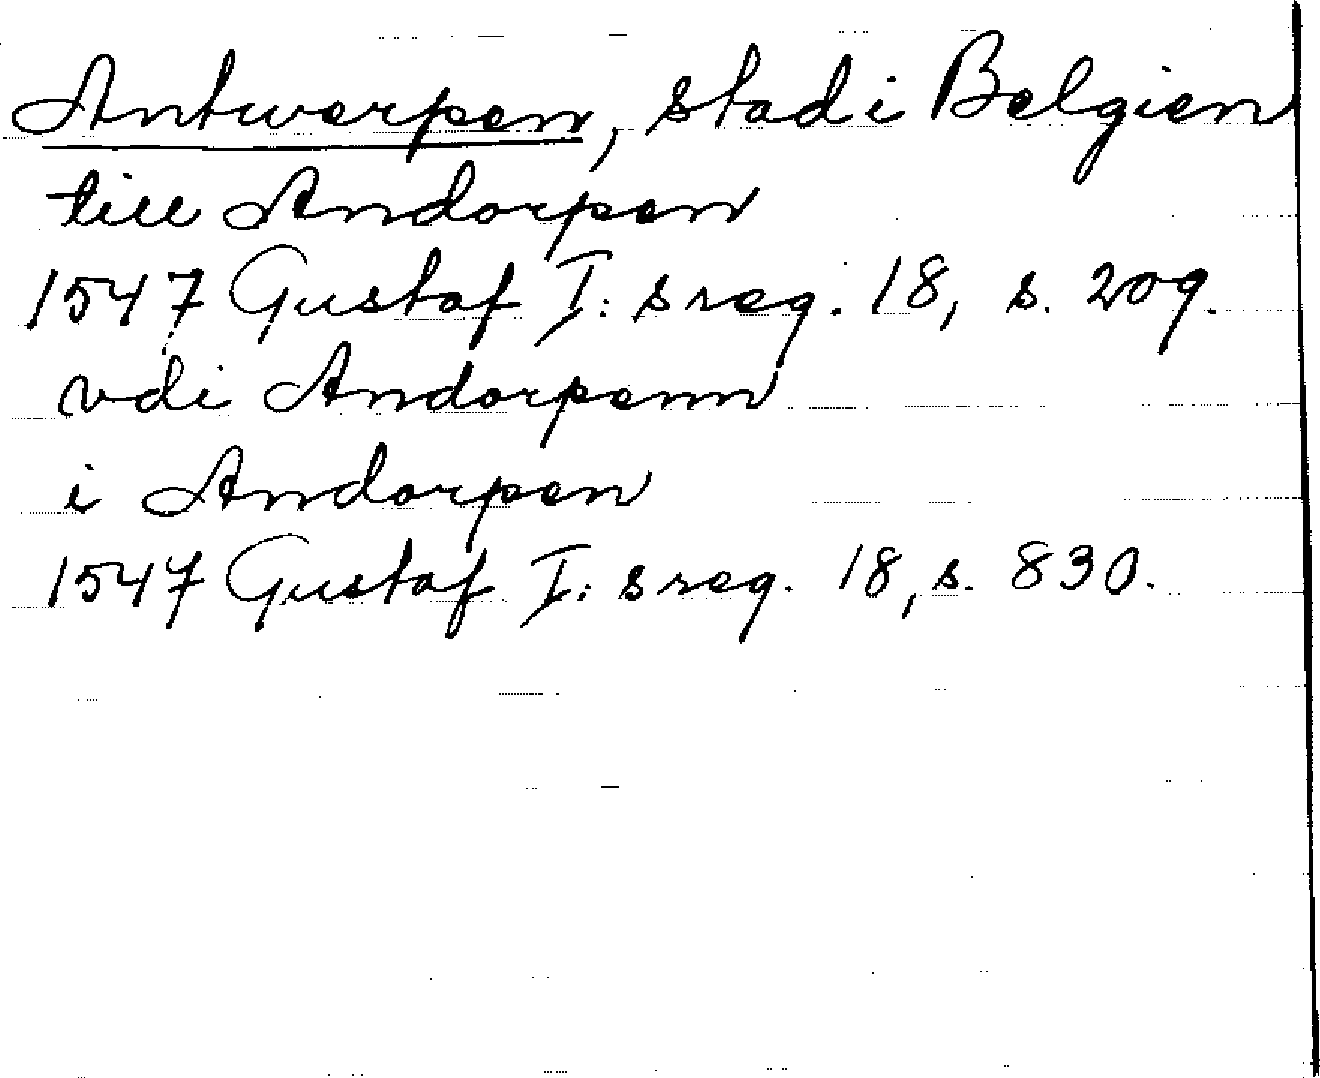 Antwerpen, stad i Belgien
till Andorpen
1547 Gustaf I:s reg. 18, s. 209.
vdi Andorpenn
i Andorpen
1547 Gustaf I:s reg. 18, s. 830.